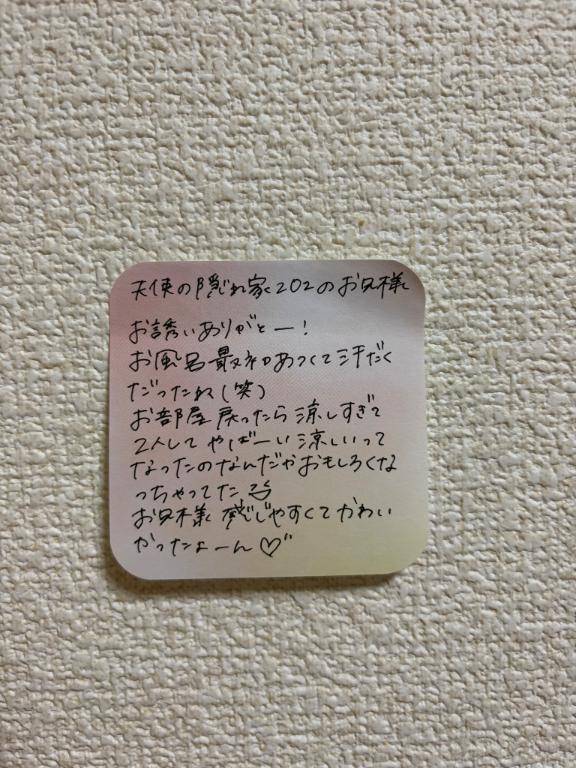 天使の隠れ家202のお兄様
お誘いありがとー!
お風呂最初あつくて汗だく
だったね(笑)
お部屋戻ったら涼しすぎて
2人してやばーい涼しいって
なったのなんだかおもしろくな
っちゃってた
お兄様感じやすくてかわい
かったよーん♡